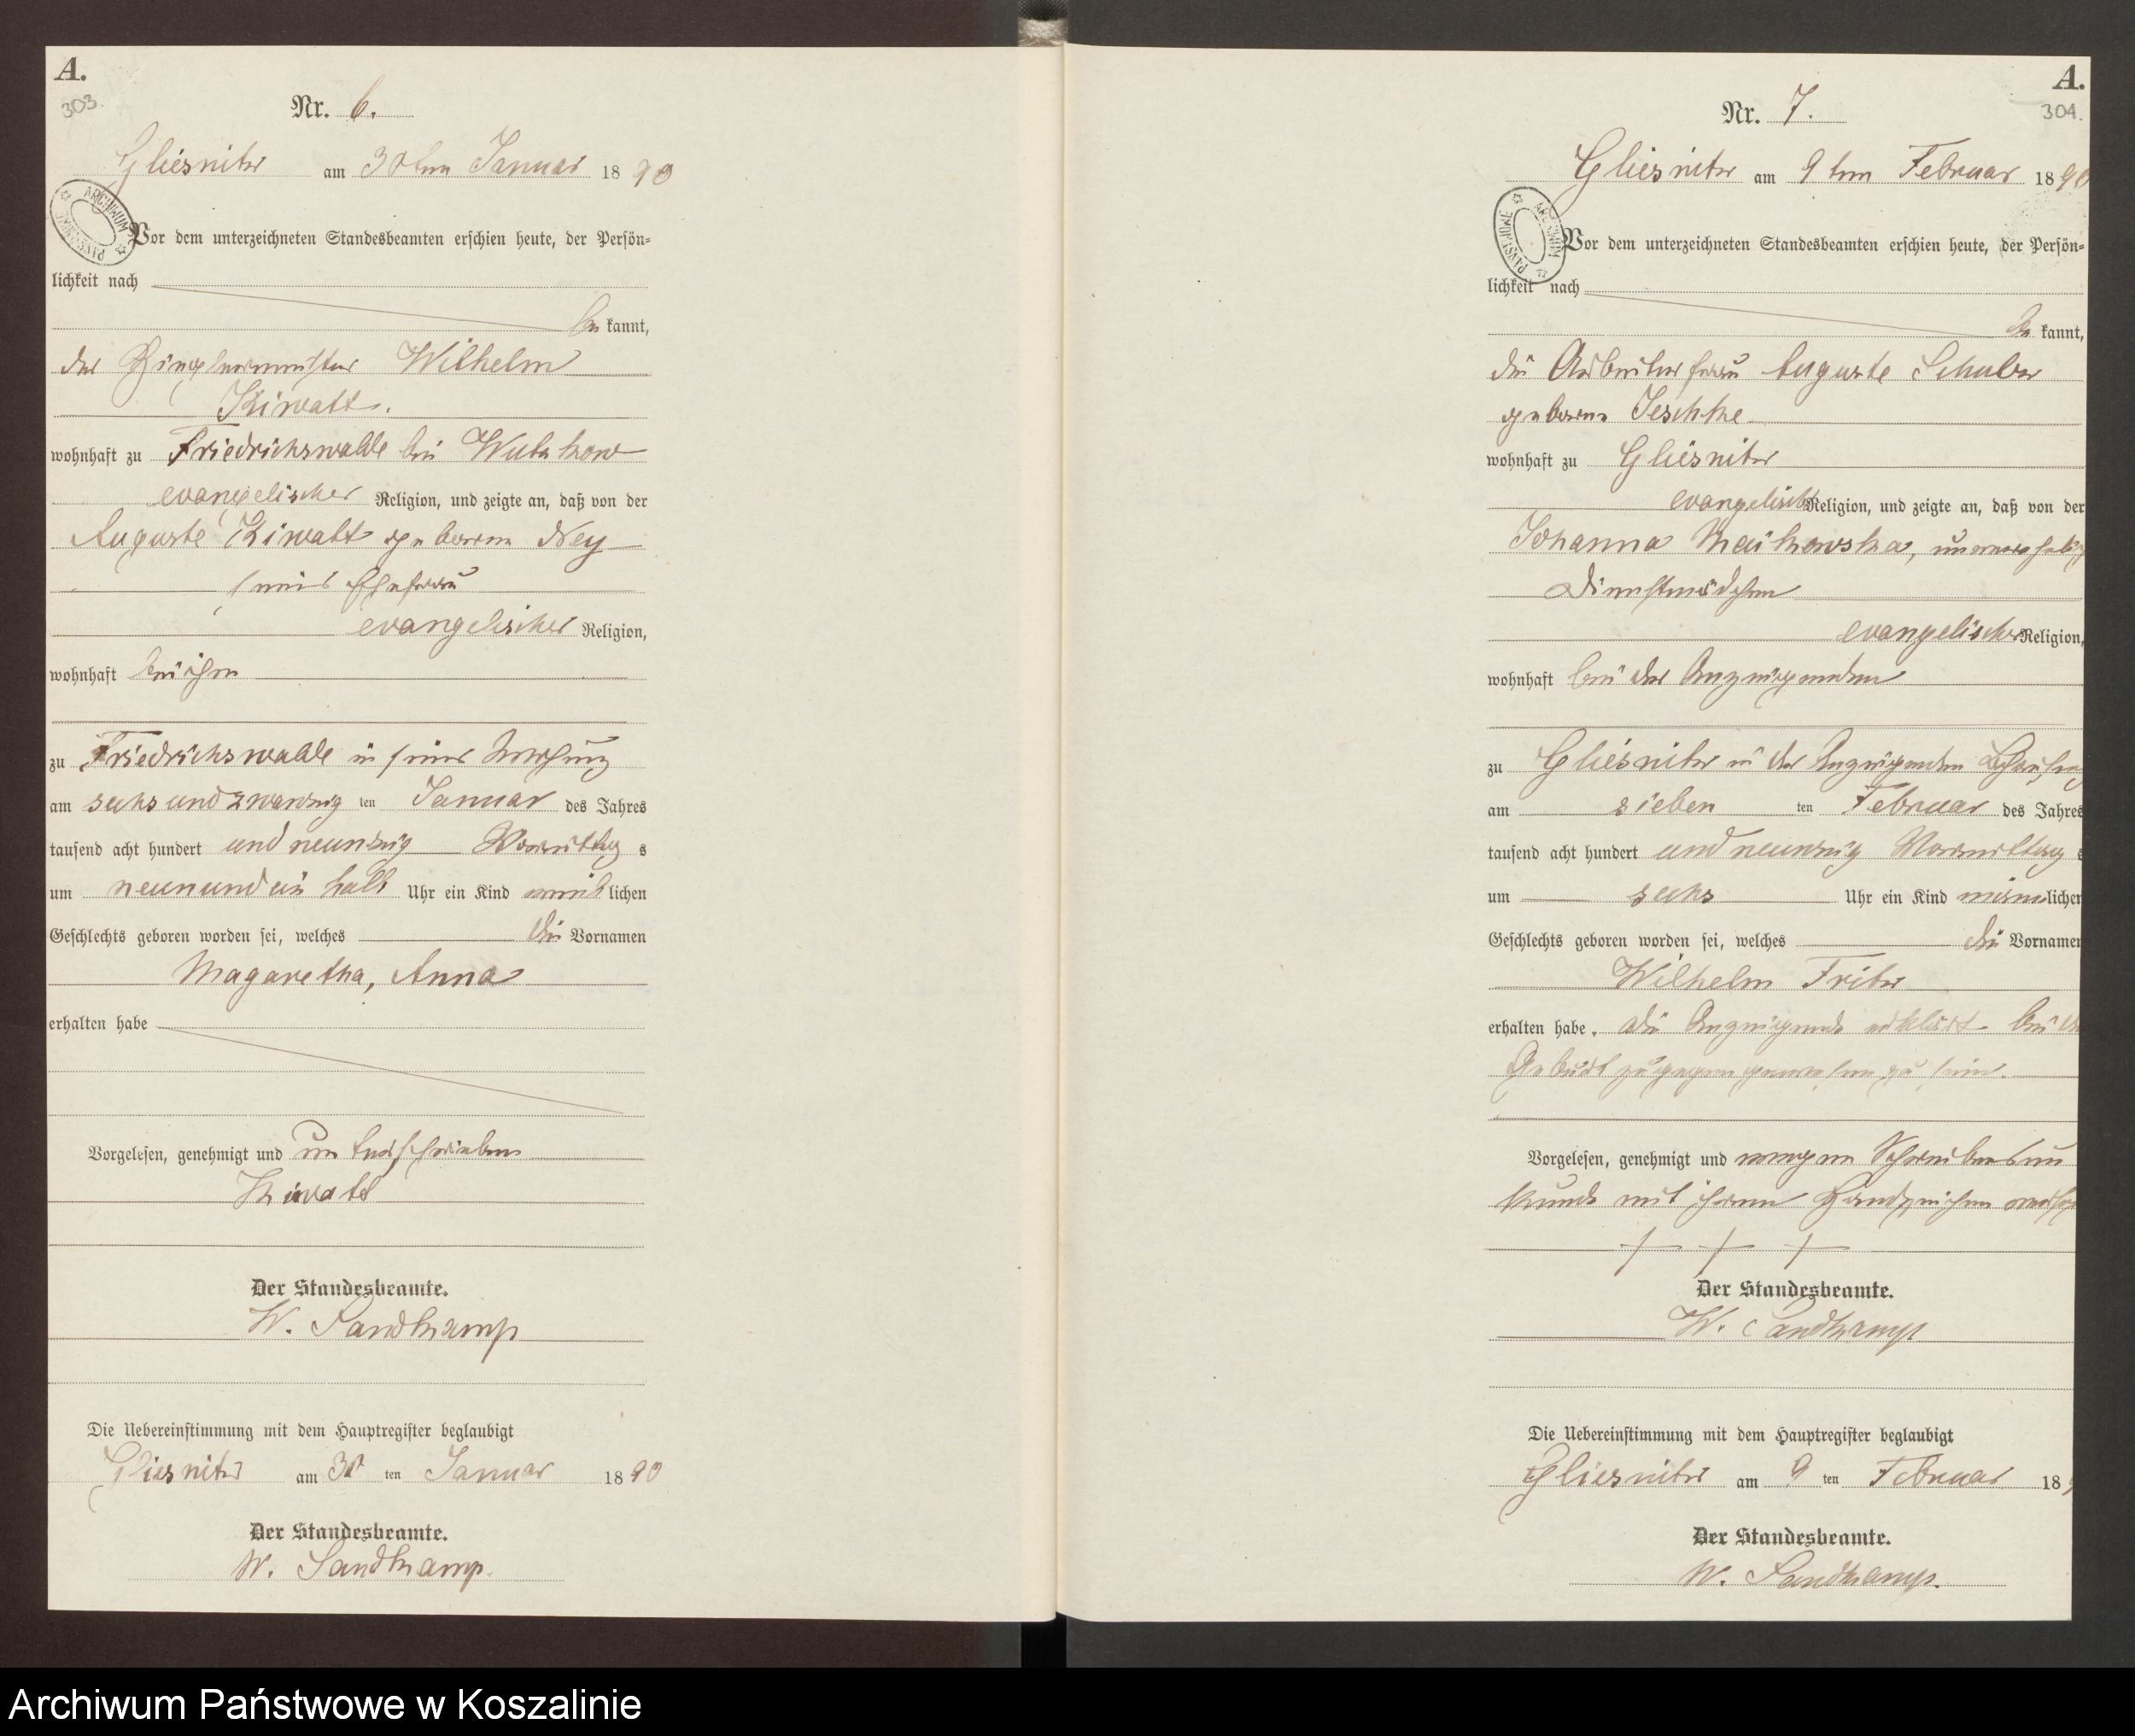 A.
303.
Nr. 6.
Gliesnitz am 30ten Januar 1890
ARCHIWUM PAŃSTWOWE
Vor dem unterzeichneten Standesbeamten erschien heute, der Persön-
lichkeit nach
be kannt,
der Zieglermeister Wilhelm
Kiwatt.
wohnhaft zu Friedrichswalde bei Wutzkow
evangelischer Religion, und zeigte an, daß von der
Auguste Kiwatt geborene Ney
seine Ehefrau
evangelischer Religion,
wohnhaft bei ihm
zu Friedrichswalde in seiner Wohnung
am sechs und zwanzig ten Januar des Jahres
tausend acht hundert und neunzig Vormittag s
um neun und ein halb Uhr ein Kind weib lichen
Geschlechts geboren worden sei, welches die Vornamen
Magaretha, Anna
erhalten habe
Vorgelesen, genehmigt und unterschrieben
Kiwatt
Der Standesbeamte.
W. Sandkamp
Die Uebereinstimmung mit dem Hauptregister beglaubigt
Gliesnitz am 30 ten Januar 1890
Der Standesbeamte.
W. Sandkamp.
A.
304.
Nr. 7.
Gliesnitz am 9ten Februar 1890
ARCHIWUM PAŃSTWOWE
Vor dem unterzeichneten Standesbeamten erschien heute, der Persön-
lichkeit nach
be kannt,
die Arbeiterfrau Auguste Schulz
geborne Jeschke
wohnhaft zu Gliesnitz
evangelischer Religion, und zeigte an, daß von der
Johanna unverehelicht
Dienstmädchen
evangelischer Religion,
wohnhaft bei der Anzeigenden
zu Gliesnitz in der Anzeigenden Behausung
am sieben ten Februar des Jahres
tausend acht hundert und neunzig Vormittag s
um sechs Uhr ein Kind männ lichen
Geschlechts geboren worden sei, welches die Vornamen
Wilhelm Fritz
erhalten habe. Die Anzeigende erklärt bei der
Geburt zugegen gewesen zu sein.
Vorgelesen, genehmigt und wegen Schreibensun
kunde mit ihrem Handzeichen versehen
+ + +
Der Standesbeamte.
W. Sandkamp
Die Uebereinstimmung mit dem Hauptregister beglaubigt
Gliesnitz am 9 ten Februar 189
Der Standesbeamte.
W. Sandkamp.
Archiwum Państwowe w Koszalinie